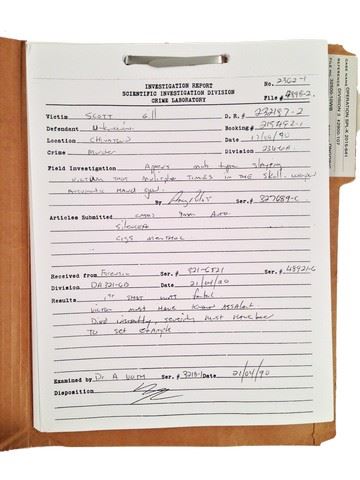 No. 2362-1
INVESTIGATION REPORT
SCIENTIFIC INVESTIGATION DIVISION
CRIME LABORATORY
File #
Victim SCOTT Gill D.R.# 232197-2
Defendant Unknown Booking# 215492-1
Location CHINATOWN Date 17/04/90
Crime Murder Division
Field Investigation Appears mob type slaying
victim shot multiple times in the skull. weapon
Automatic Hand gun.
By Ser.# 327689-C
Articles Submitted 9mm Auto
silencer
cigs menthol
Received from Forensic Ser.# 821-6521 Ser.# 48921-6
Division DA321-60 Date 21/04/90
Results 1st shot fatal
victim must have known assailant
Died instantly, severity must have been
To set example
Examined by Dr A Ser.# 3218-1 Date 21/04/90
Disposition
CASE NAME OPERATION SPL-X 2015-941